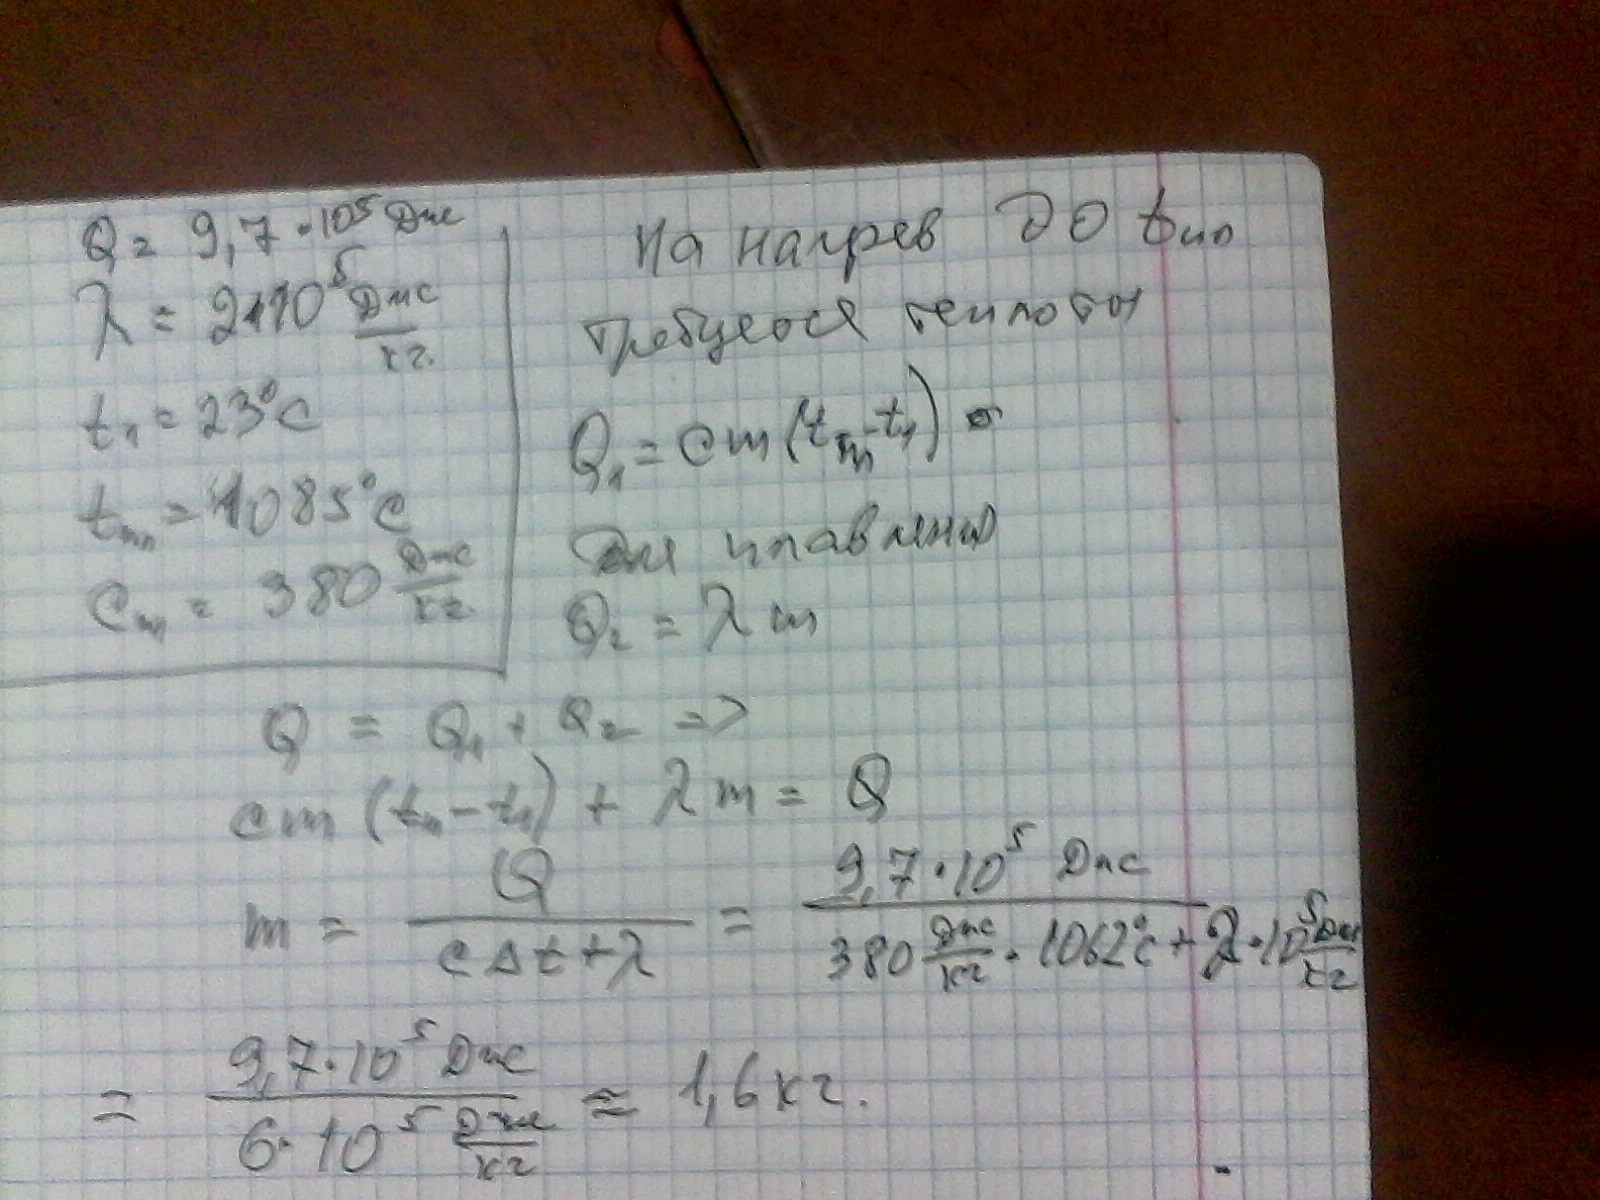 Q = 9,7 · 10⁵ Дж
λ = 2·10⁵ Дж/кг.
t₁ = 23°C
tпл = 1085°C
Cм = 380 Дж/кг
На нагрев до tпл
требуеося теплоты
Q₁ = cm (tпл - t₁)
Для плавления
Q₂ = λ m
Q = Q₁ + Q₂ =>
cm (tп - t₁) + λ m = Q
m = Q/(c Δt + λ) = 9,7·10⁵ Дж/(380 Дж/кг · 1062°C + 2·10⁵ Дж/кг)
= 9,7·10⁵ Дж/(6·10⁵ Дж/кг) ≈ 1,6 кг.